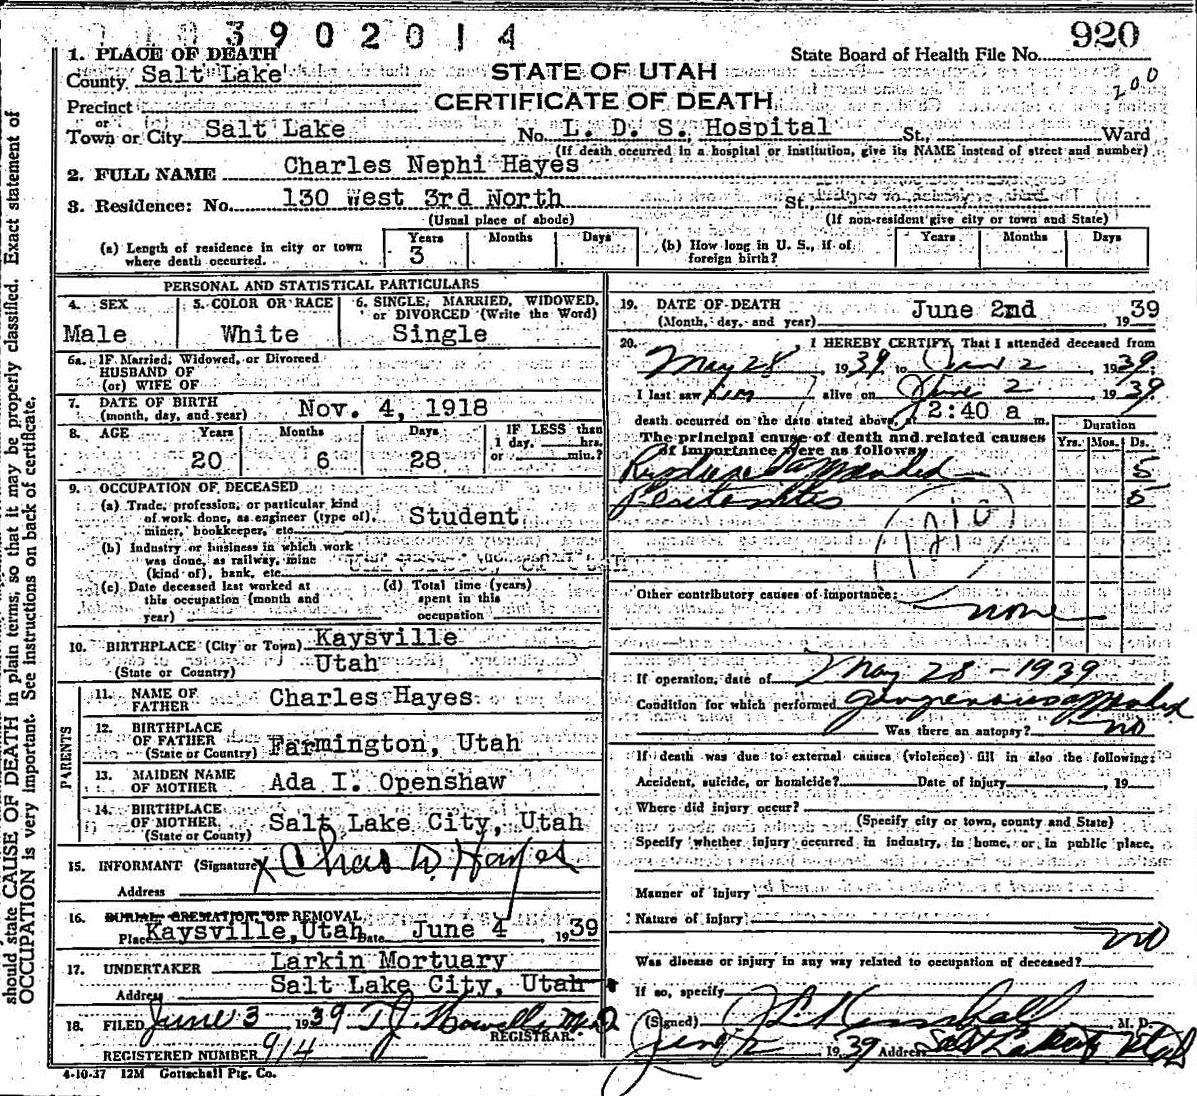 3902014
920
1. PLACE OF DEATH
State Board of Health File No.
County Salt Lake
STATE OF UTAH
200
Precinct
CERTIFICATE OF DEATH
or
Town or City Salt Lake No. L. D. S. Hospital St., Ward
(If death occurred in a hospital or institution, give its NAME instead of street and number)
2. FULL NAME Charles Nephi Hayes
3. Residence: No. 130 West 3rd North St.,
(Usual place of abode) (If non-resident give city or town and State)
(a) Length of residence in city or town where death occurred. Years 3 Months Days
(b) How long in U. S., if of foreign birth? Years Months Days
PERSONAL AND STATISTICAL PARTICULARS
4. SEX 5. COLOR OR RACE 6. SINGLE, MARRIED, WIDOWED,
or DIVORCED (Write the Word)
Male White Single
6a. IF Married, Widowed, or Divorced
HUSBAND OF
(or) WIFE OF
7. DATE OF BIRTH
(month, day, and year) Nov. 4, 1918
8. AGE Years Months Days IF LESS than
1 day, hrs.
or min.?
20 6 28
9. OCCUPATION OF DECEASED
(a) Trade, profession, or particular kind
of work done, as engineer (type of), Student
miner, bookkeeper, etc.
(b) Industry or business in which work
was done, as railway, mine
(kind of), bank, etc.
(c) Date deceased last worked at
this occupation (month and
year)
(d) Total time (years)
spent in this
occupation
10. BIRTHPLACE (City or Town) Kaysville
(State or Country) Utah
PARENTS
11. NAME OF
FATHER Charles Hayes
12. BIRTHPLACE
OF FATHER
(State or Country) Farmington, Utah
13. MAIDEN NAME
OF MOTHER Ada I. Openshaw
14. BIRTHPLACE
OF MOTHER
(State or County) Salt Lake City, Utah
15. INFORMANT (Signature) X Chas W. Hayes
Address
16. BURIAL, CREMATION, OR REMOVAL
Place Kaysville, Utah Date June 4, 1939
17. UNDERTAKER Larkin Mortuary
Address Salt Lake City, Utah
18. FILED June 3 1939 T J Howells M.D.
REGISTRAR.
REGISTERED NUMBER 914
4-10-37 12M Gottschall Ptg. Co.
19. DATE OF DEATH
(Month, day, and year) June 2nd, 1939
20. I HEREBY CERTIFY, That I attended deceased from
May 28, 1939 to June 2 1939;
I last saw him alive on June 2 1939
death occurred on the date stated above, at 12:40 a m.
The principal cause of death and related causes
of importance were as follows:
Duration
Yrs. Mos. Ds.
5
Peritonitis 5
Other contributory causes of importance:
none
If operation, date of May 28 - 1939
Condition for which performed
Was there an autopsy? no
If death was due to external causes (violence) fill in also the following:
Accident, suicide, or homicide? Date of injury , 19
Where did injury occur?
(Specify city or town, county and State)
Specify whether injury occurred in industry, in home, or in public place.
Manner of injury
Nature of injury
no
Was disease or injury in any way related to occupation of deceased?
If so, specify
(Signed) M. D.
June 2 1939 Address Salt Lake City Utah
should state CAUSE OF DEATH in plain terms, so that it may be properly classified. Exact statement of
OCCUPATION is very important. See instructions on back of certificate.